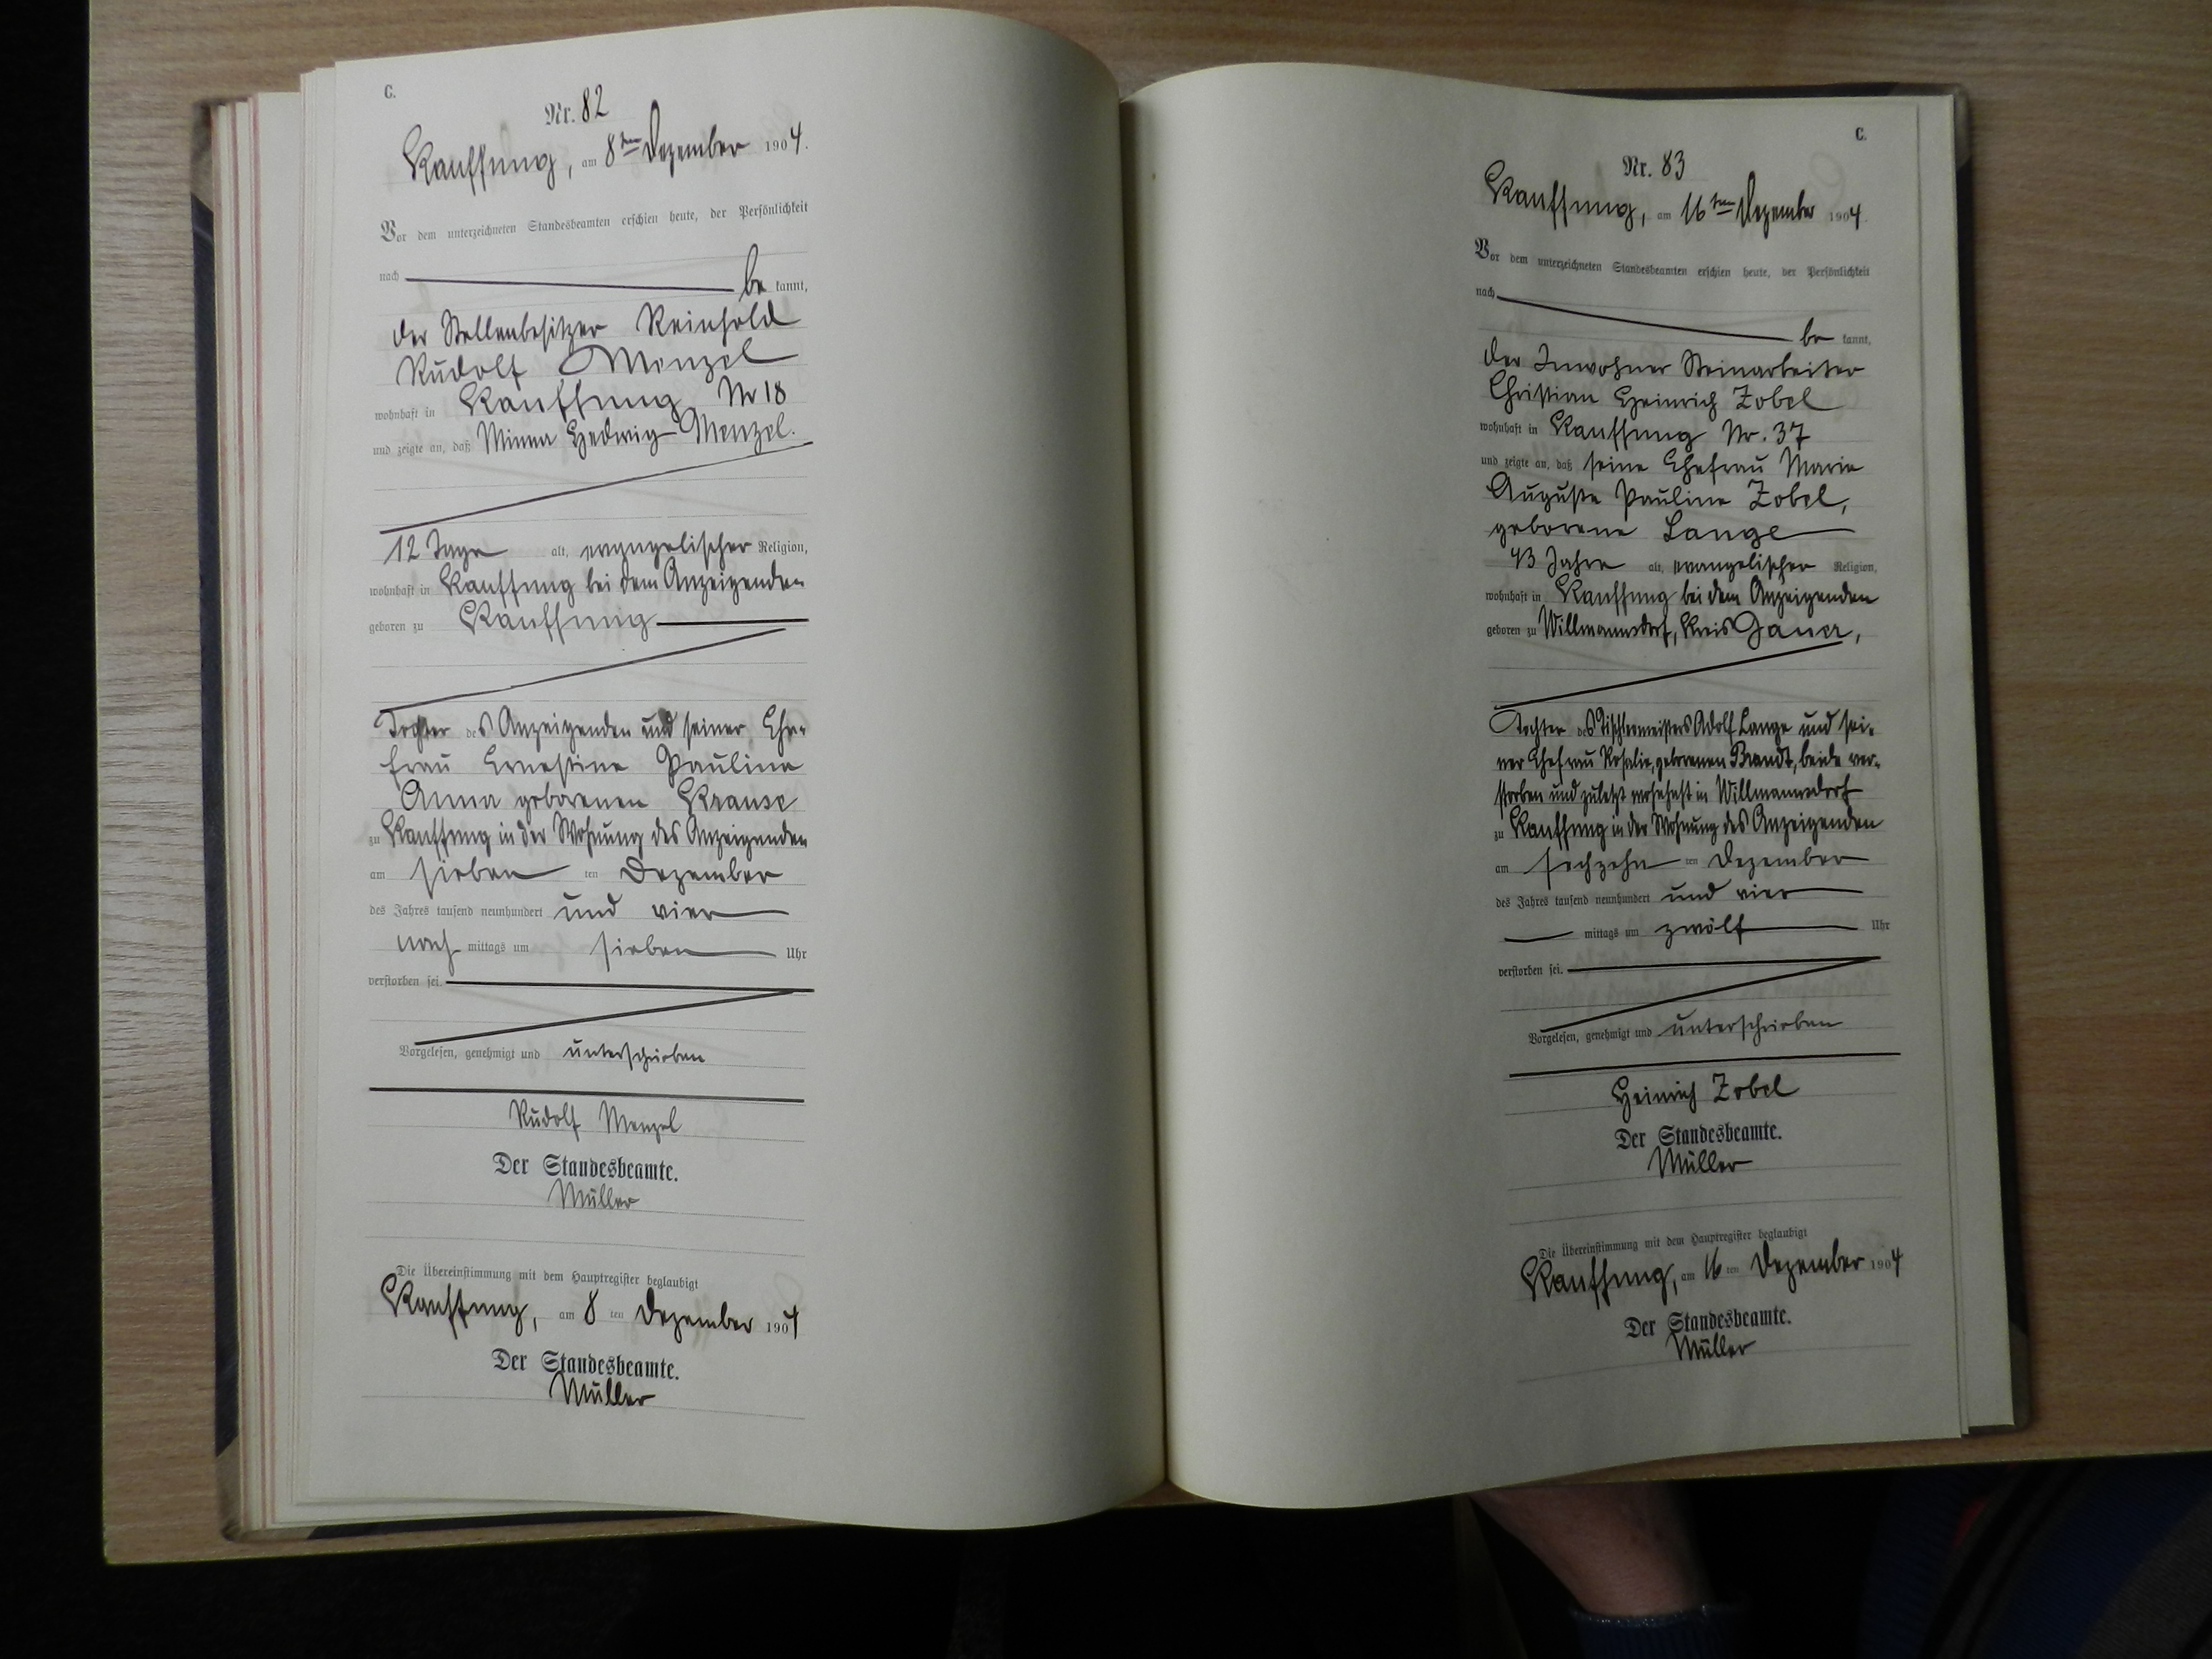 C.
Nr. 82
Kauffung, am 8ten Dezember 1904.
Vor dem unterzeichneten Standesbeamten erschien heute, der Persönlichkeit
nach be kannt,
der Stellenbesitzer Reinhold
Rudolf Menzel
wohnhaft in Kauffung Nr 18
und zeigte an, daß Minna Hedwig Menzel.
12 Tage alt, evangelischer Religion,
wohnhaft in Kauffung bei dem Anzeigenden
geboren zu Kauffung
Tochter des Anzeigenden und seiner Ehe-
frau Ernestine Pauline
Anna geborenen Krause
zu Kauffung in der Wohnung des Anzeigenden
am sieben ten Dezember
des Jahres tausend neunhundert und vier
nach mittags um sieben Uhr
verstorben sei.
Vorgelesen, genehmigt und unterschrieben
Rudolf Menzel
Der Standesbeamte.
Müller
Die Übereinstimmung mit dem Hauptregister beglaubigt
Kauffung, am 8 ten Dezember 1904
Der Standesbeamte.
Müller
C.
Nr. 83
Kauffung, am 16ten Dezember 1904.
Vor dem unterzeichneten Standesbeamten erschien heute, der Persönlichkeit
nach be kannt,
der Inwohner Steinarbeiter
Christian Heinrich Zobel
wohnhaft in Kauffung Nr. 37
und zeigte an, daß seine Ehefrau Marie
Auguste Pauline Zobel,
geborene Lange
43 Jahre alt, evangelischer Religion,
wohnhaft in Kauffung bei dem Anzeigenden
geboren zu Willmannsdorf, Kreis Jauer,
Tochter des Tischlermeisters Adolf Lange und sei-
ner Ehefrau Rosalie, geborenen Brandt, beide ver-
storben und zuletzt wohnhaft in Willmannsdorf
zu Kauffung in der Wohnung des Anzeigenden
am sechzehn ten Dezember
des Jahres tausend neunhundert und vier
mittags um zwölf Uhr
verstorben sei.
Vorgelesen, genehmigt und unterschrieben
Heinrich Zobel
Der Standesbeamte.
Müller
Die Übereinstimmung mit dem Hauptregister beglaubigt
Kauffung, am 16 ten Dezember 1904
Der Standesbeamte.
Müller